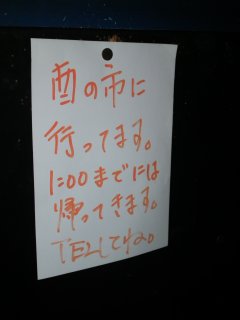 酉の市に
行ってます。
1:00までには
帰ってきます。
TELしてね。